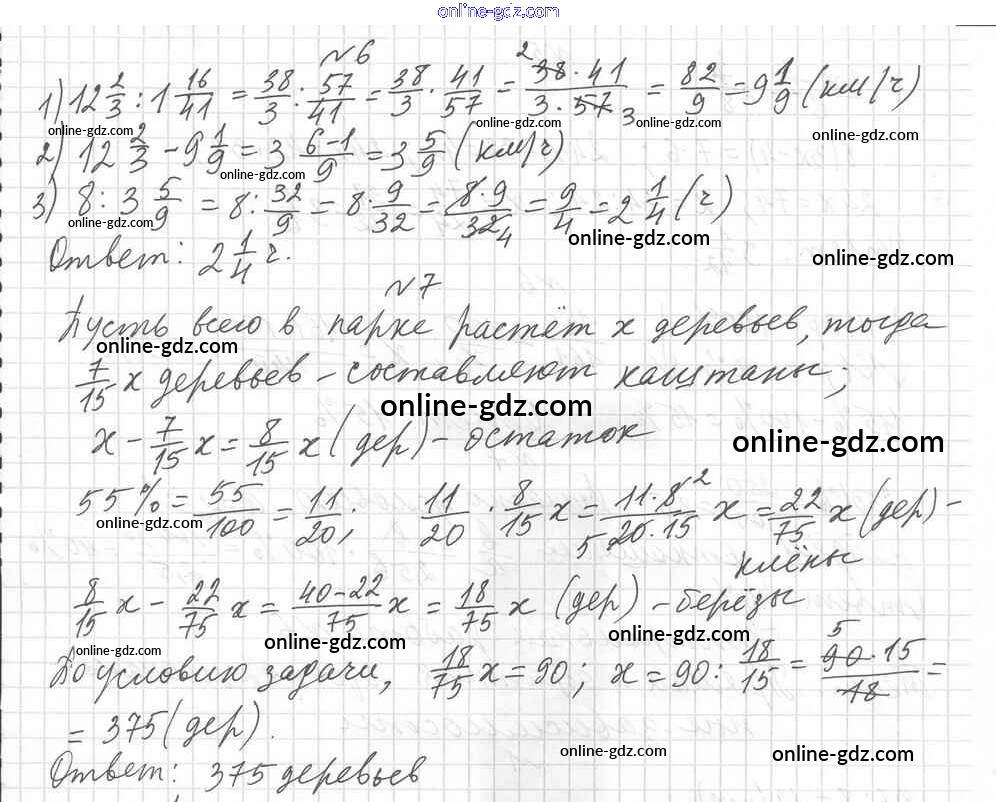 online-gdz.com
№6
1) 12 2/3 : 1 16/41 = 38/3 : 57/41 = 38/3 · 41/57 = 38 · 41 / 3 · 57 = 82/9 = 9 1/9 (км/ч)
online-gdz.com online-gdz.com online-gdz.com online-gdz.com
2) 12 2/3 - 9 1/9 = 3 6-1/9 = 3 5/9 (км/ч)
online-gdz.com
3) 8 : 3 5/9 = 8 : 32/9 = 8 · 9/32 = 8·9/32 = 9/4 = 2 1/4 (ч)
online-gdz.com online-gdz.com
Ответ: 2 1/4 ч.
online-gdz.com
№7
Пусть всего в парке растёт x деревьев, тогда
online-gdz.com
7/15 x деревьев – составляют каштаны;
online-gdz.com
x - 7/15 x = 8/15 x (дер) – остаток
online-gdz.com
55% = 55/100 = 11/20; 11/20 · 8/15 x = 11·8/20·15 x = 22/75 x (дер) –
online-gdz.com
клёны
8/15 x - 22/75 x = 40-22/75 x = 18/75 x (дер) – берёзы
online-gdz.com online-gdz.com online-gdz.com
По условию задачи, 18/75 x = 90; x = 90 : 18/15 = 90·15/18 =
= 375 (дер).
online-gdz.com online-gdz.com
Ответ: 375 деревьев